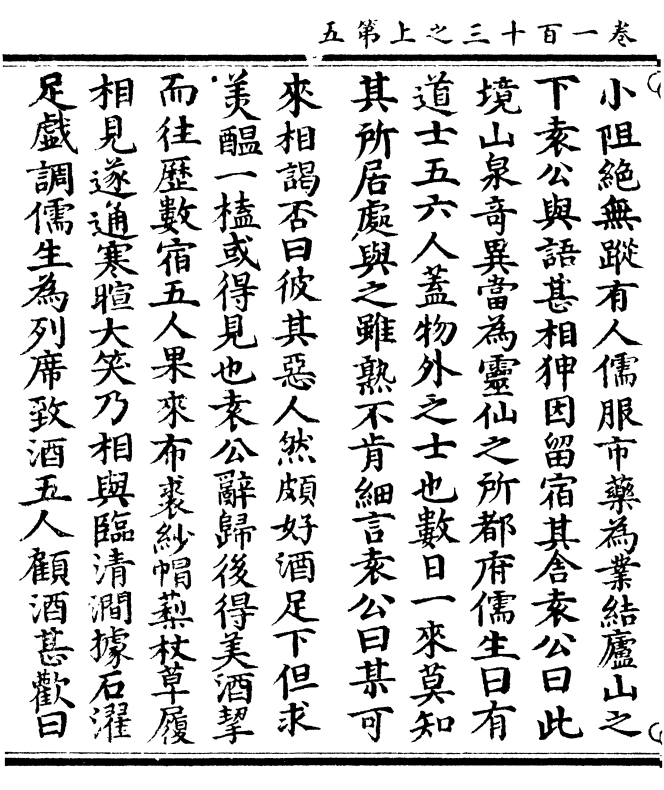 卷一百十三之上第五
小阻絕無蹤有人儒服市藥為業結廬山之
下袁公與語甚相狎因留宿其舍袁公曰此
境山泉奇異當為靈仙之所都府儒生曰有
道士五六人蓋物外之士也數日一來莫知
其所居處與之雖熟不肯細言袁公曰某可
來相謁否曰彼其惡人然頗好酒足下但求
美醞一榼或得見也袁公辭歸後得美酒挈
而往歷數宿五人果來布裘紗帽藜杖草履
相見遂通寒暄大笑乃相與臨清澗據石濯
足戲調儒生為列席致酒五人顧酒甚歡曰